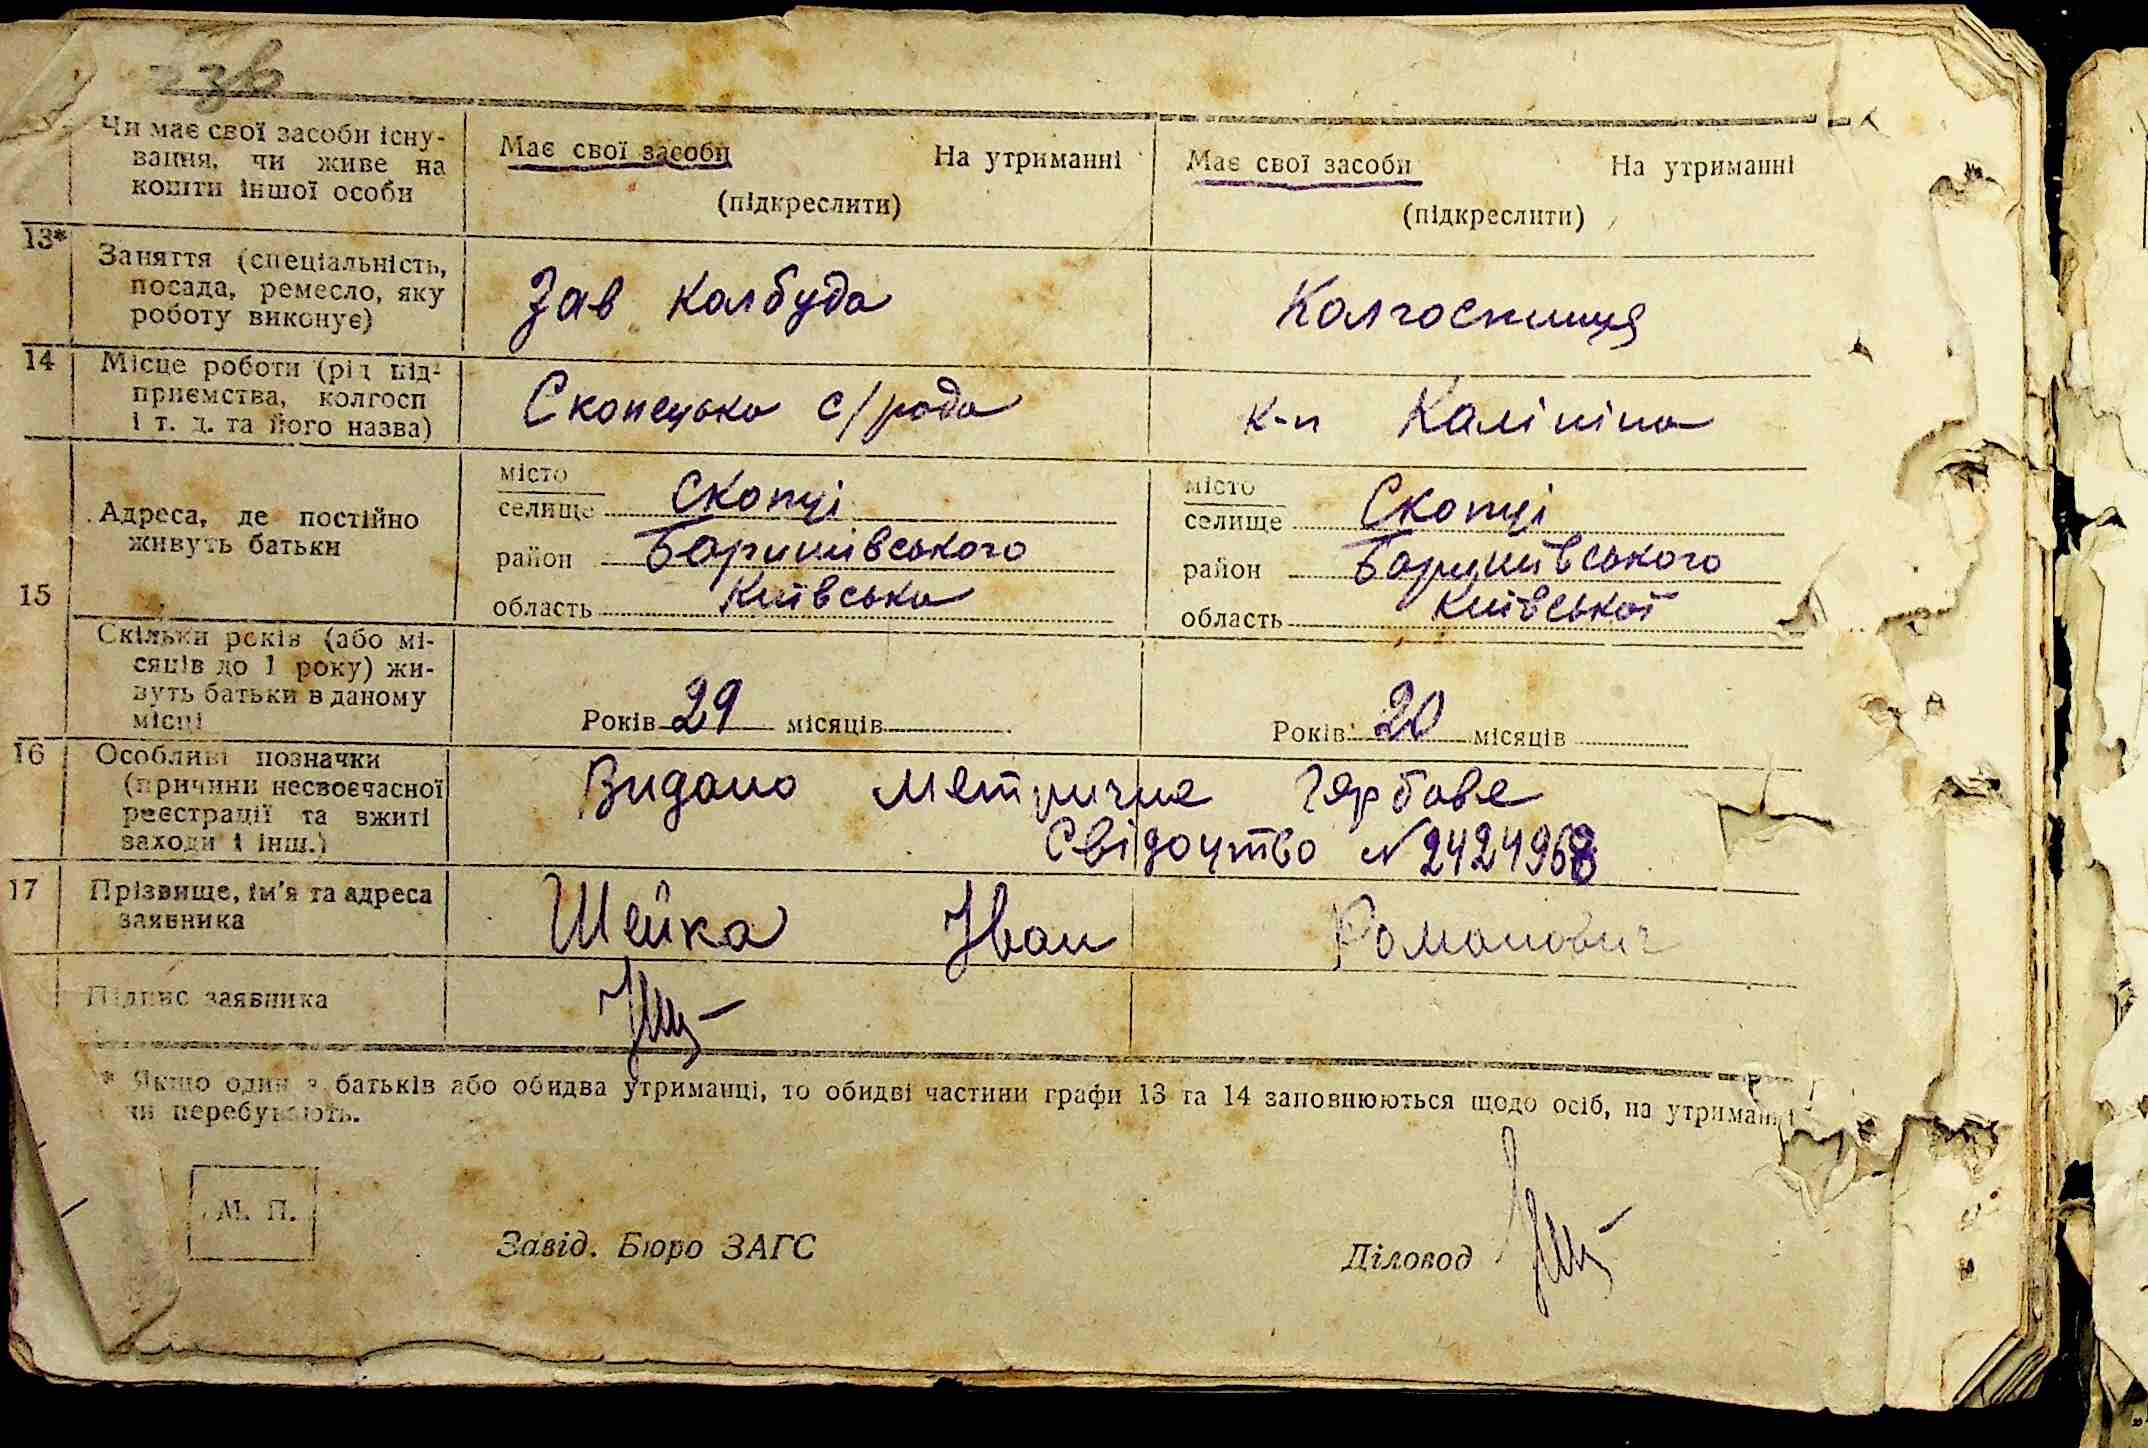 Чи має свої засоби існу-
вання, чи живе на
кошти іншої особи
Має свої засоби На утриманні
(підкреслити)
Має свої засоби На утриманні
(підкреслити)
13*
Заняття (спеціальність,
посада, ремесло, яку
роботу виконує)
Зав колбуда
Колгоспниця
14
Місце роботи (рід під-
приємства, колгосп
і т. д. та його назва)
Скопецька с/рада
к-п Калініна
15
Адреса, де постійно
живуть батьки
місто
селище Скопці
район Баришівського
область Київська
місто
селище Скопці
район Баришівського
область Київської
Скільки років (або мі-
сяців до 1 року) жи-
вуть батьки в даному
місці
Років 29 місяців
Років 20 місяців
16
Особливі позначки
(причини несвоєчасної
реєстрації та вжиті
заходи і інш.)
Видано метричне гербове
Свідоцтво № 2424968
17
Прізвище, ім'я та адреса
заявника
Шейка Іван Романович
Підпис заявника
* Якщо один з батьків або обидва утриманці, то обидві частини графи 13 та 14 заповнюються щодо осіб, на утриманні
чи перебувають.
М. П.
Завід. Бюро ЗАГС
Діловод